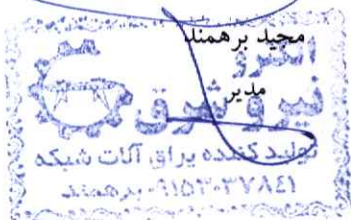 مجید برهمند
الکترو
مدیر
نیرو شرق
تولید کننده یراق آلات شبکه
۰۹۱۵۳۰۳۷۸۴۱-برهمند